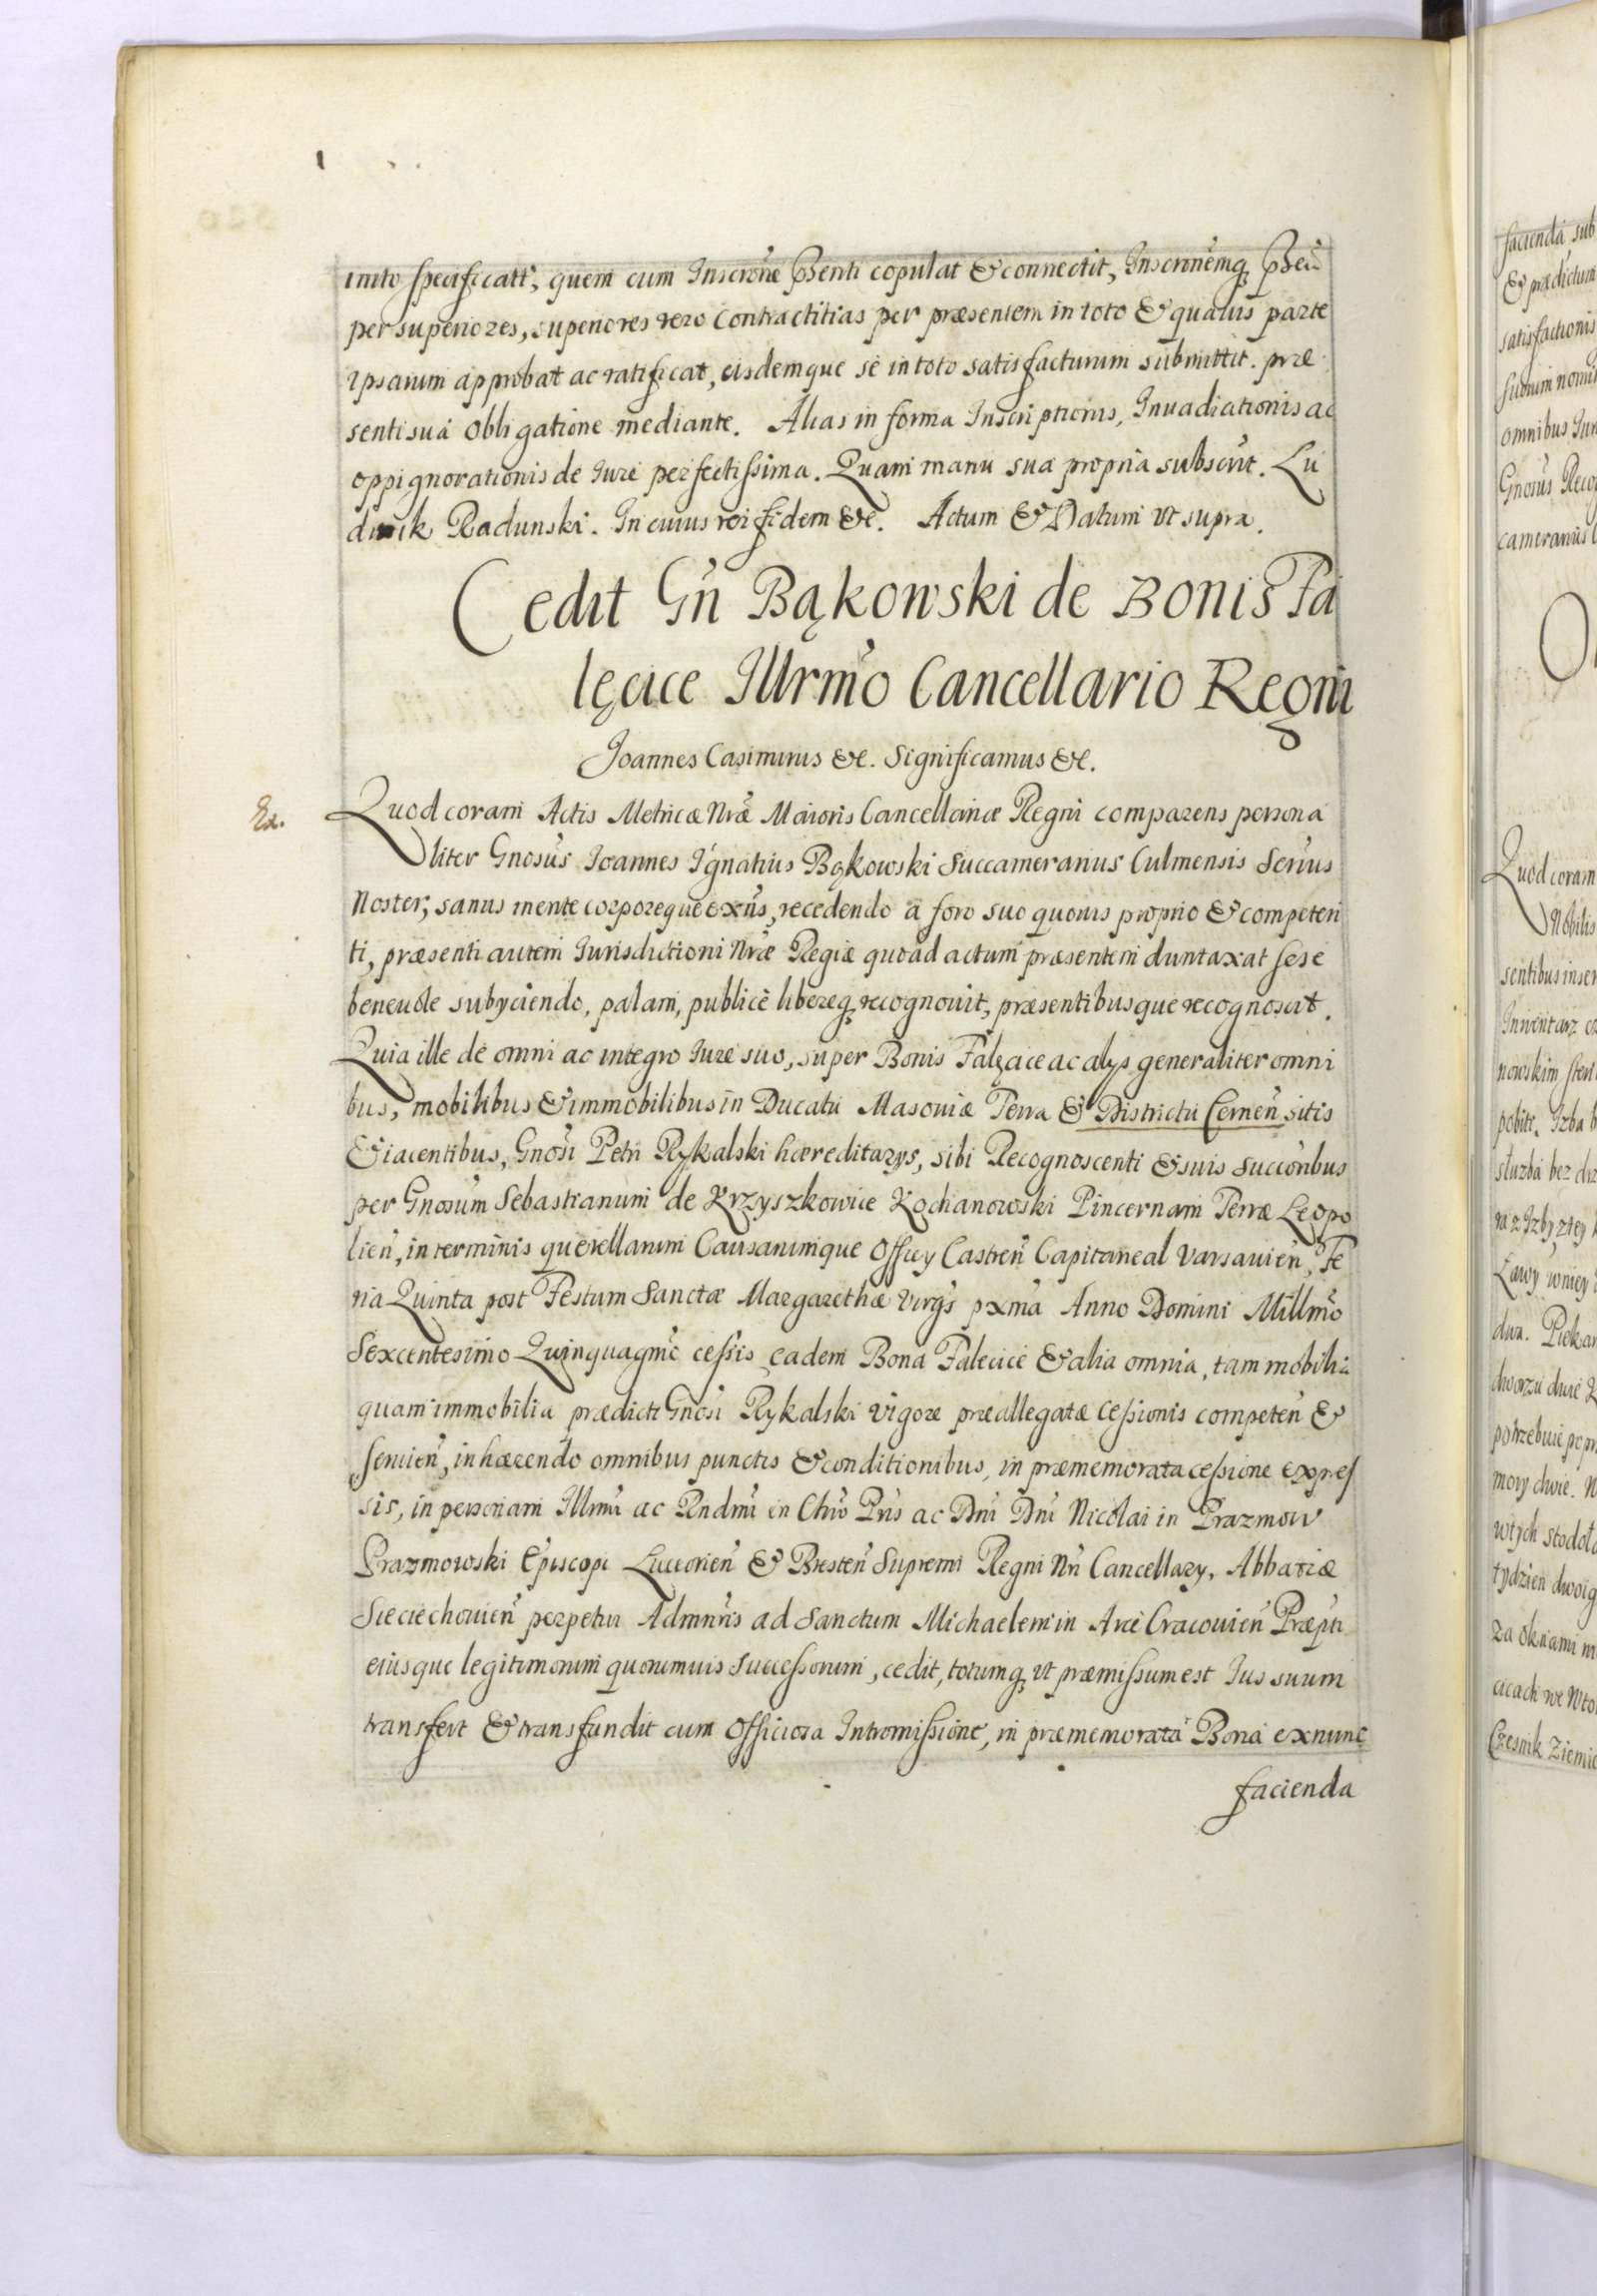 inito specificatt, quem cum Inscrone Pbenti copulat & connectit, Inscronemq Pbeu
per superiores, superiores vero contractitias per præsentem in toto & quauis parte
ipsarum approbat ac ratificat, eisdemque se in toto satisfacturum submittit. præ
senti sua obligatione mediante. Alias in forma Inscriptionis, Inuadiationis ac
oppignorationis de Iure perfectissima. Quam manu sua propria subscrit. Lu
dwik Radunski. In cuius rei fidem &c. Actum & Datum vt supra.
Cedit Gn Bąkowski de Bonis Fa
lęcice Illrmo Cancellario Regni
Joannes Casimirus &c. Significamus &c.
Ex.
Quod coram Actis Metricæ Nræ Maioris Cancellariæ Regni comparens persona
liter Gnosus Ioannes Ignatius Bąkowski Succameranus Culmensis Seruus
Noster, sanus mente corporeque exñs, recedendo a foro suo quouis proprio & competen
ti, præsenti autem Iurisdictioni Nræ Regiæ quoad actum præsentem duntaxat sese
beneuole subyciendo, palam, publicè libereq recognouit, præsentibusque recognoscit.
Quia ille de omni ac integro Iure suo, super Bonis Falęcice ac alys generaliter omni
bus, mobilibus & immobilibus in Ducatu Masouiæ Terra & Districtu Cernen sitis
& iacentibus, Gnosi Petri Rykalski hæreditarys, sibi Recognoscenti & suis succoribus
per Gnosum Sebastianum de Krzyszkowice Kochanowski Pincernam Terræ Leopo
lien, in terminis querellarum Causarumque Officy Castren Capitaneal Varsauien, Fe
ria Quinta post Festum Sanctæ Margarethæ Virgs pxma Anno Domini Millmo
Sexcentesimo Quinquagmo cessis, eadem Bona Falecice & alia omnia, tam mobilia
quam immobilia prædicti Gnosi Rykalski vigore præallegatæ cessionis competen &
seruien, inhærendo omnibus punctis & conditionibus, in præmemorata cessione expres
sis, in personam Illrmi ac Rndmi in Chro Pris ac Dni Dni Nicolai in Prazmow
Prazmowski Episcopi Luceorien & Bresten Supremi Regni Nri Cancellary, Abbatiæ
Sieciechouien perpetui Admnris ad Sanctum Michaelem in Arce Cracouien Præpti
eiusque legitimorum quorumuis Successorum, cedit, totumq vt præmissum est Ius suum
transfert & transfundit cum officiosa Intromissione, in præmemorata Bona exnunc
facienda